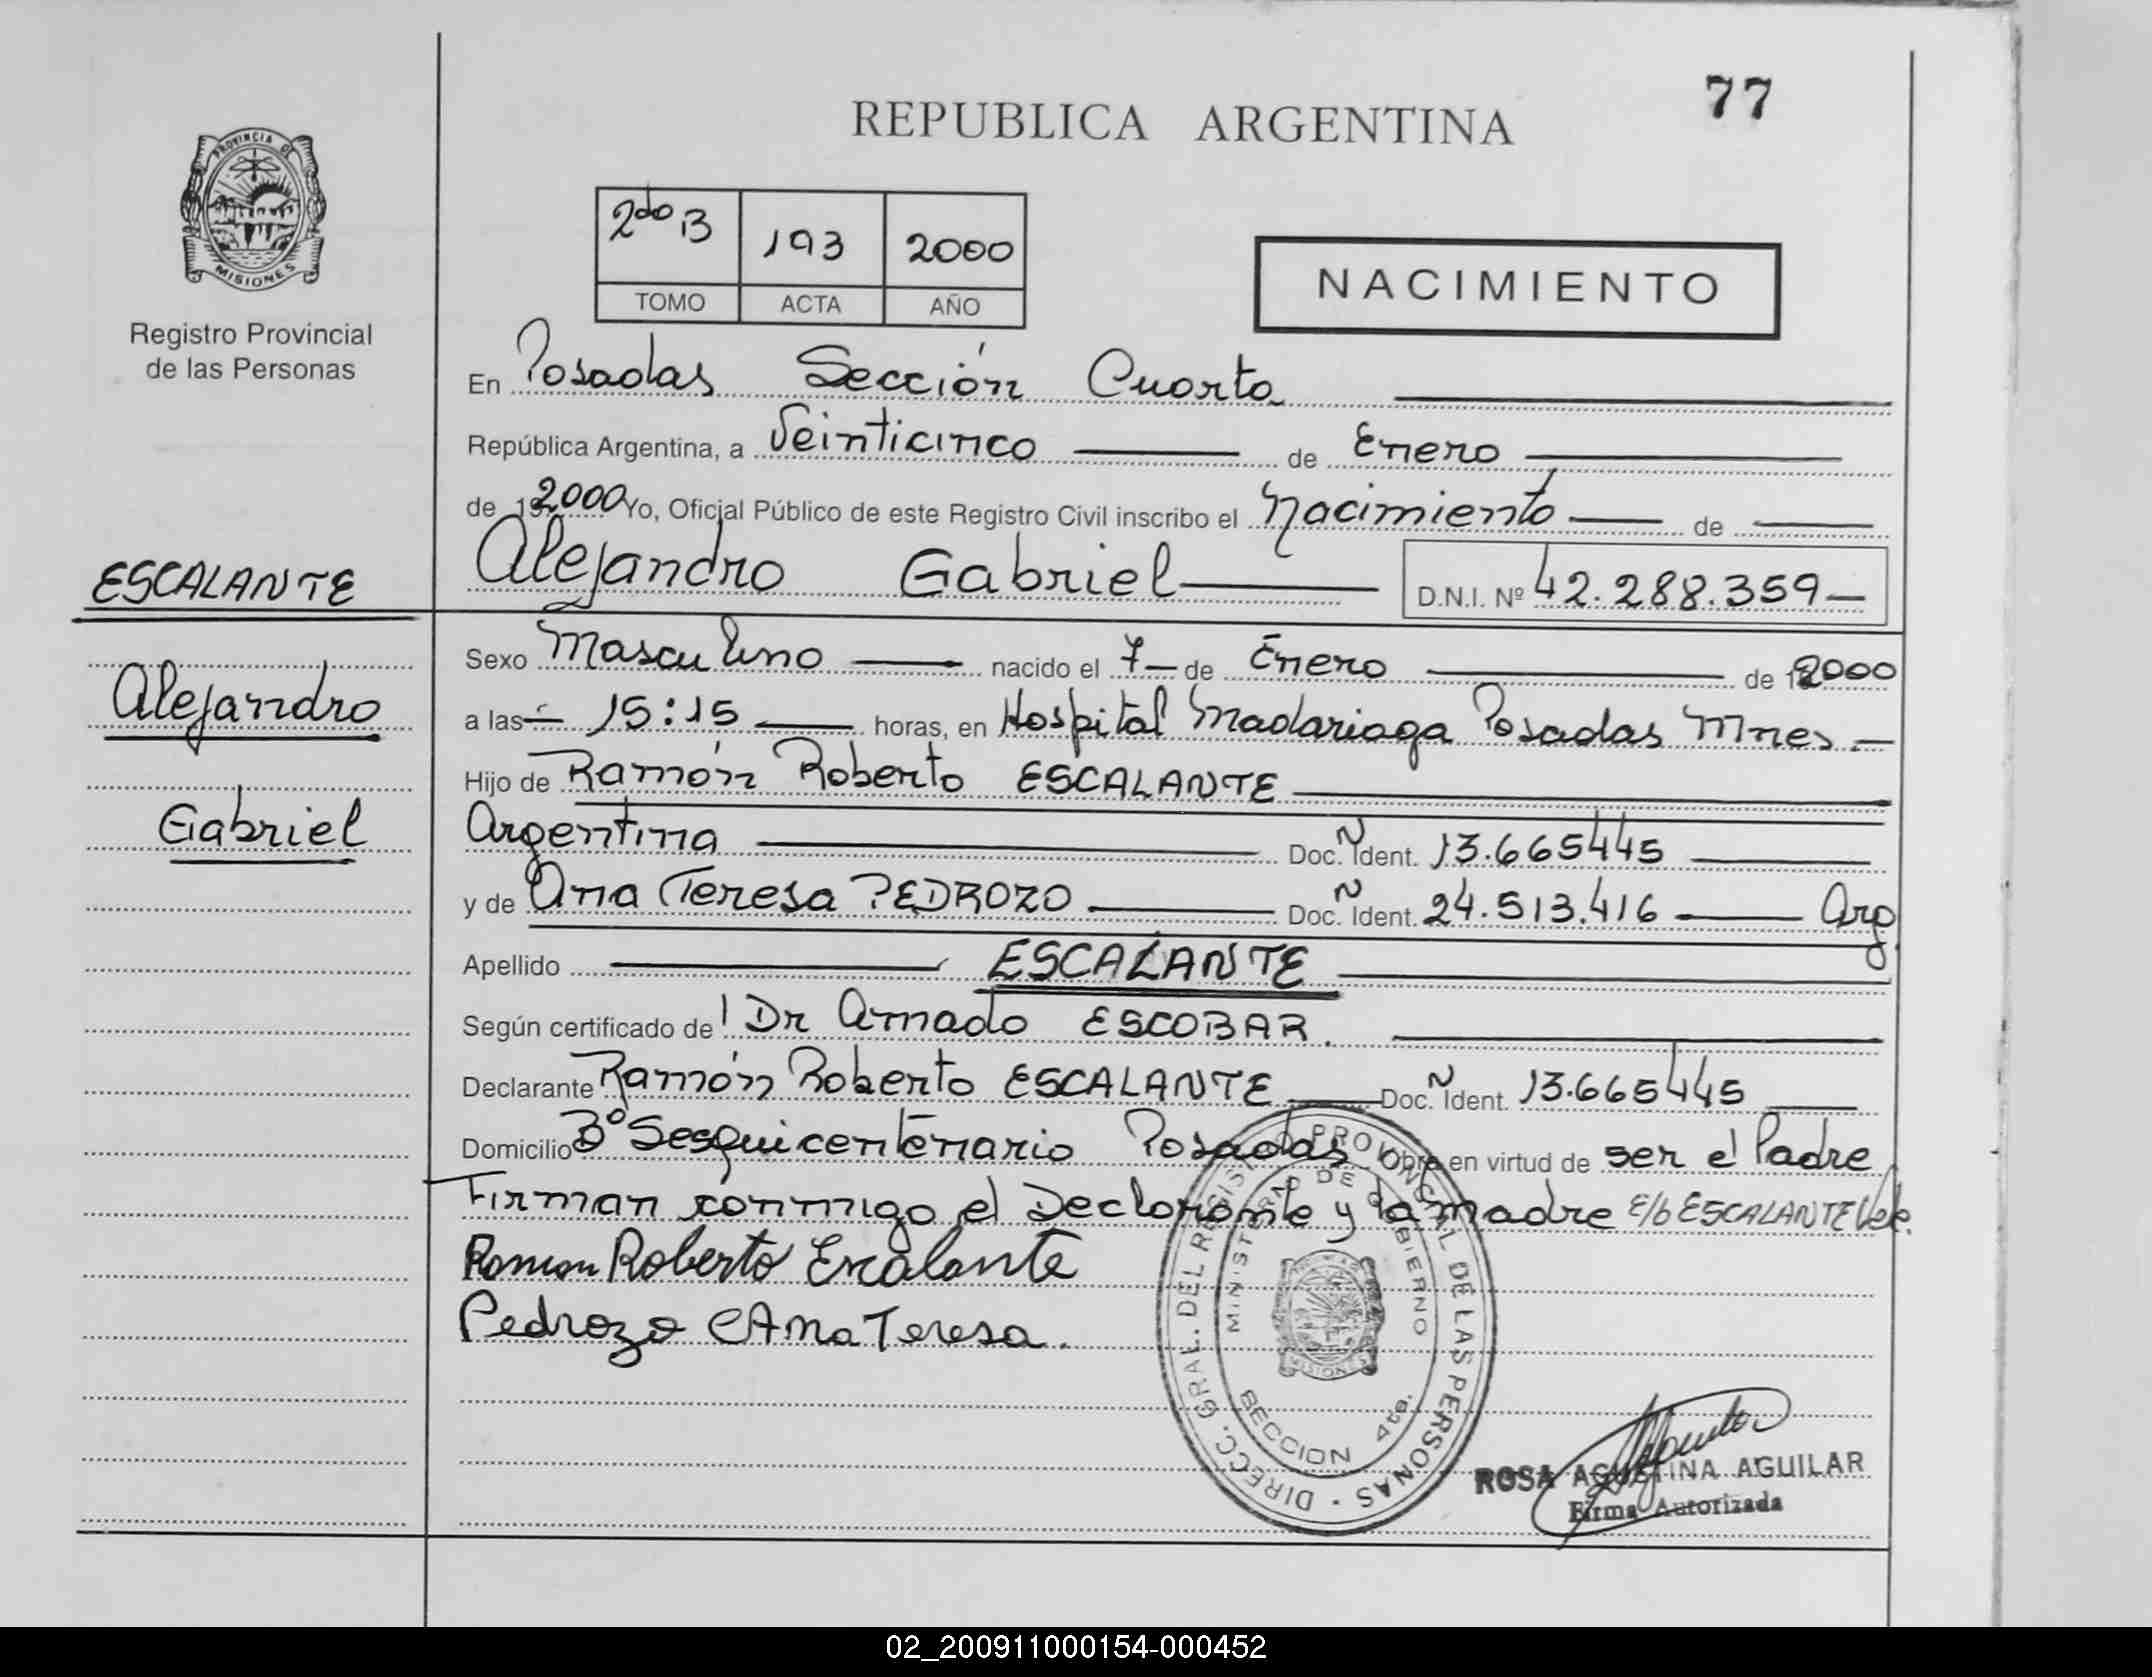 77
REPUBLICA ARGENTINA
PROVINCIA DE
MISIONES
Registro Provincial
de las Personas
2do B 193 2000
TOMO ACTA AÑO
NACIMIENTO
En Posadas Sección Cuarta
República Argentina, a Veinticinco de Enero
de 19 2000 Yo, Oficial Público de este Registro Civil inscribo el Nacimiento de
Alejandro Gabriel D.N.I. Nº 42.288.359
ESCALANTE
Alejandro
Gabriel
Sexo Masculino nacido el 7 de Enero de 2000
a las 15:15 horas, en Hospital Madariaga Posadas Mnes
Hijo de Ramón Roberto ESCALANTE
Argentina Doc. Ñ Ident. 13.665445
y de Ana Teresa PEDROZO Doc. Ñ Ident. 24.513.416 Arg
Apellido ESCALANTE
Según certificado de Dr Amado ESCOBAR.
Declarante Ramón Roberto ESCALANTE Doc. Ñ Ident. 13.665445
Domicilio Bº Sesquicentenario Posadas Obra en virtud de ser el Padre
Firman conmigo el Declarante y la madre E/b ESCALANTE Vale.
Ramon Roberto Escalante
Pedrozo Ana Teresa.
DIRECC. GRAL. DEL REGISTRO PROVINCIAL DE LAS PERSONAS
MINISTERIO DE GOBIERNO
MISIONES
SECCION 4ta.
ROSA AGUSTINA AGUILAR
Firma Autorizada
02_200911000154-000452